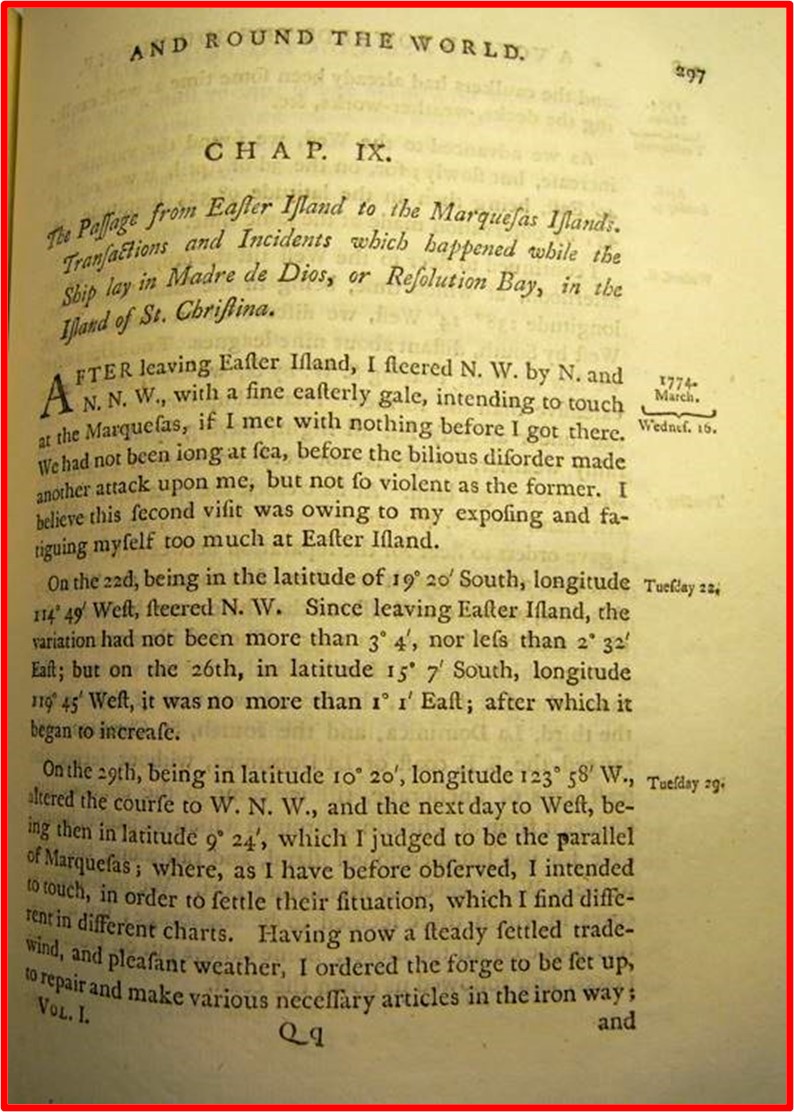 AND ROUND THE WORLD.
297
CHAP. IX.
The Paſſage from Eaſter Iſland to the Marqueſas Iſlands.
Tranſactions and Incidents which happened while the
Ship lay in Madre de Dios, or Reſolution Bay, in the
Iſland of St. Chriſtina.
AFTER leaving Eaſter Iſland, I ſteered N. W. by N. and
N. N. W., with a fine eaſterly gale, intending to touch
at the Marqueſas, if I met with nothing before I got there.
We had not been long at ſea, before the bilious diſorder made
another attack upon me, but not ſo violent as the former. I
believe this ſecond viſit was owing to my expoſing and fa-
tiguing myſelf too much at Eaſter Iſland.
1774.
March.
Wedneſ. 16.
On the 22d, being in the latitude of 19° 20′ South, longitude
114° 49′ Weſt, ſteered N. W. Since leaving Eaſter Iſland, the
variation had not been more than 3° 4′, nor leſs than 2° 32′
Eaſt; but on the 26th, in latitude 15° 7′ South, longitude
119° 45′ Weſt, it was no more than 1° 1′ Eaſt; after which it
began to increaſe.
Tueſday 22.
On the 29th, being in latitude 10° 20′, longitude 123° 58′ W.,
altered the courſe to W. N. W., and the next day to Weſt, be-
ing then in latitude 9° 24′, which I judged to be the parallel
of Marqueſas; where, as I have before obſerved, I intended
to touch, in order to ſettle their ſituation, which I find diffe-
rent in different charts. Having now a ſteady ſettled trade-
wind, and pleaſant weather, I ordered the forge to be ſet up,
to repair and make various neceſſary articles in the iron way;
Tueſday 29.
VOL. I.
Q q
and